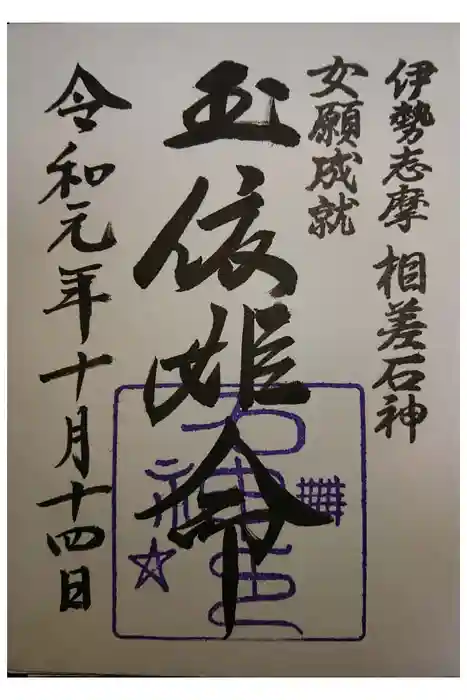 伊勢志摩 相差石神
女願成就
玉依姫命
令和元年十月十四日